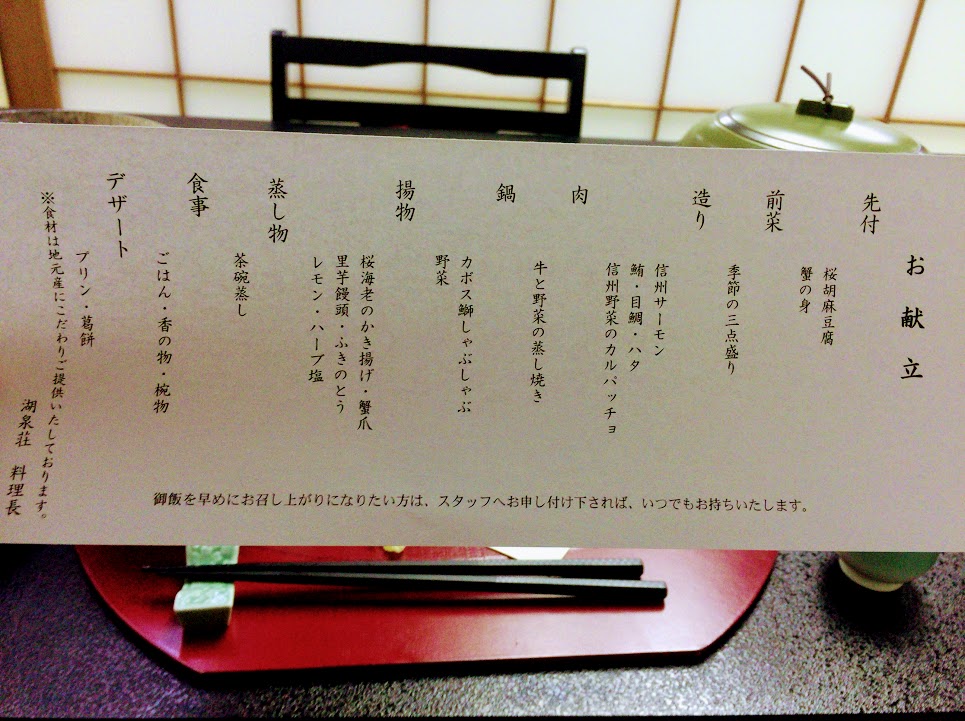 お献立
先付
桜胡麻豆腐
蟹の身
前菜
季節の三点盛り
造り
信州サーモン
鮪・目鯛・ハタ
信州野菜のカルパッチョ
肉
牛と野菜の蒸し焼き
鍋
カボス鰤しゃぶしゃぶ
野菜
揚物
桜海老のかき揚げ・蟹爪
里芋饅頭・ふきのとう
レモン・ハーブ塩
蒸し物
茶碗蒸し
食事
ごはん・香の物・椀物
デザート
プリン・葛餅
※食材は地元産にこだわりご提供いたしております。
湖泉荘 料理長
御飯を早めにお召し上がりになりたい方は、スタッフへお申し付け下されば、いつでもお持ちいたします。